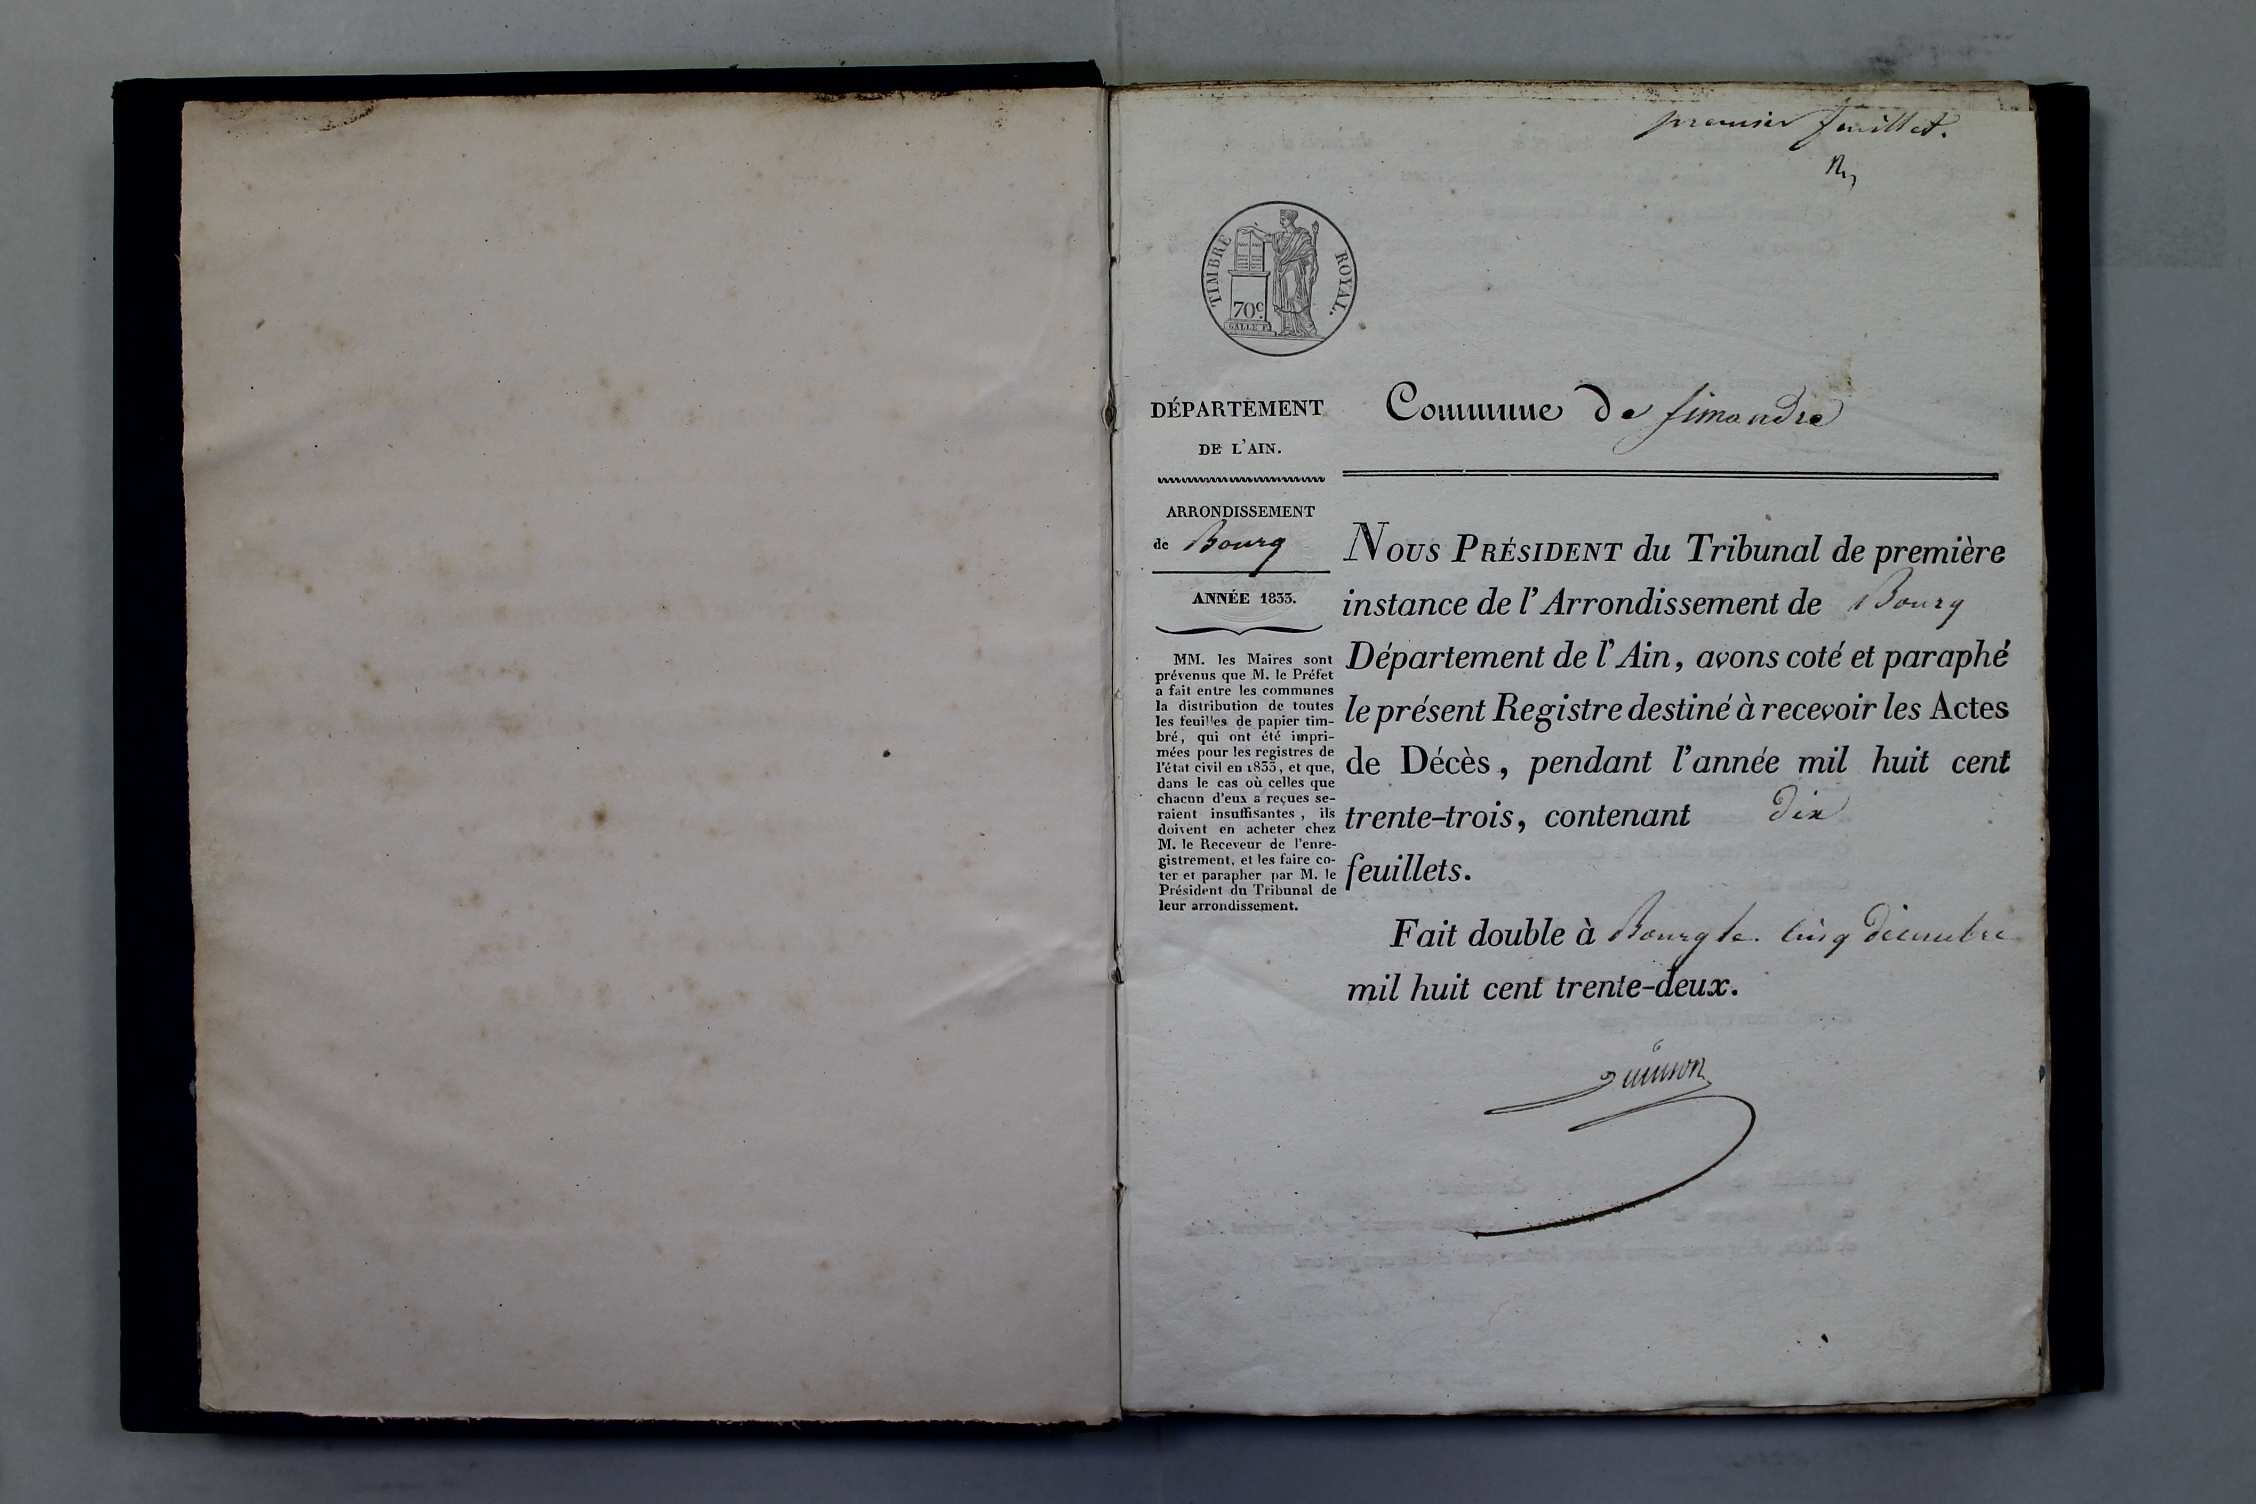 premier feuillet.
TIMBRE ROYAL.
70c.
GALLE F.
DÉPARTEMENT
DE L'AIN.
ARRONDISSEMENT
de Bourg
ANNÉE 1833.
MM. les Maires sont
prévenus que M. le Préfet
a fait entre les communes
la distribution de toutes
les feuilles de papier tim-
bré, qui ont été impri-
mées pour les registres de
l'état civil en 1833, et que,
dans le cas où celles que
chacun d'eux a reçues se-
raient insuffisantes, ils
doivent en acheter chez
M. le Receveur de l'enre-
gistrement, et les faire co-
ter et parapher par M. le
Président du Tribunal de
leur arrondissement.
Commune de Simandre
NOUS PRÉSIDENT du Tribunal de première
instance de l'Arrondissement de Bourg
Département de l'Ain, avons coté et paraphé
le présent Registre destiné à recevoir les Actes
de Décès, pendant l'année mil huit cent
trente-trois, contenant dix
feuillets.
Fait double à Bourg le cinq décembre
mil huit cent trente-deux.